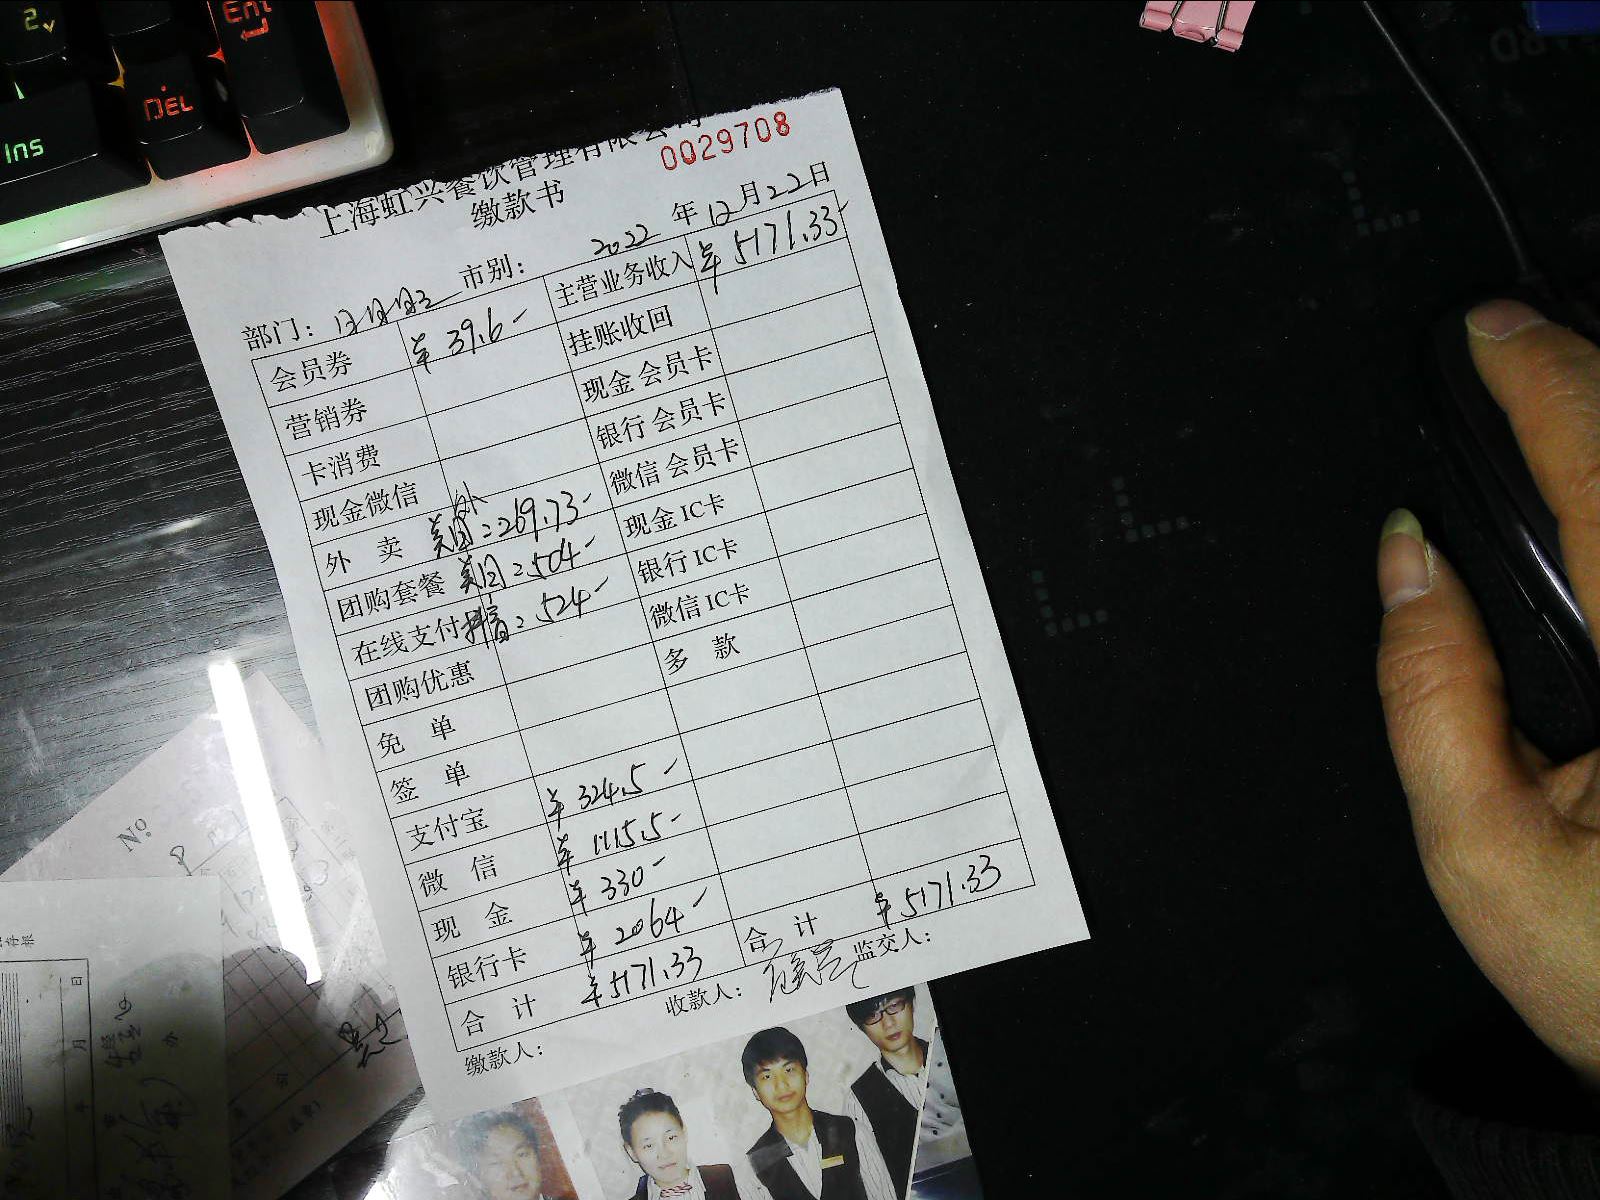 2
Ent
DEL
Ins
上海虹兴餐饮管理有限公司
0029708
缴款书
2022 年 12 月 22 日
部门： 市别：
会员券 ¥ 39.6- 主营业务收入 ¥ 5171.33-
营销券 挂账收回
卡消费 现金 会员卡
现金微信 银行 会员卡
外 卖 美团外:2269.73- 微信 会员卡
团购套餐 美团:504- 现金 IC卡
在线支付 抖音:524- 银行 IC卡
团购优惠 微信 IC卡
免 单 多 款
签 单
支付宝 ¥ 324.5-
微 信 ¥ 1115.5-
现 金 ¥ 330-
银行卡 ¥ 2064-
合 计 ¥5171.33 合 计 ¥5171.33
缴款人： 收款人： 监交人：
No